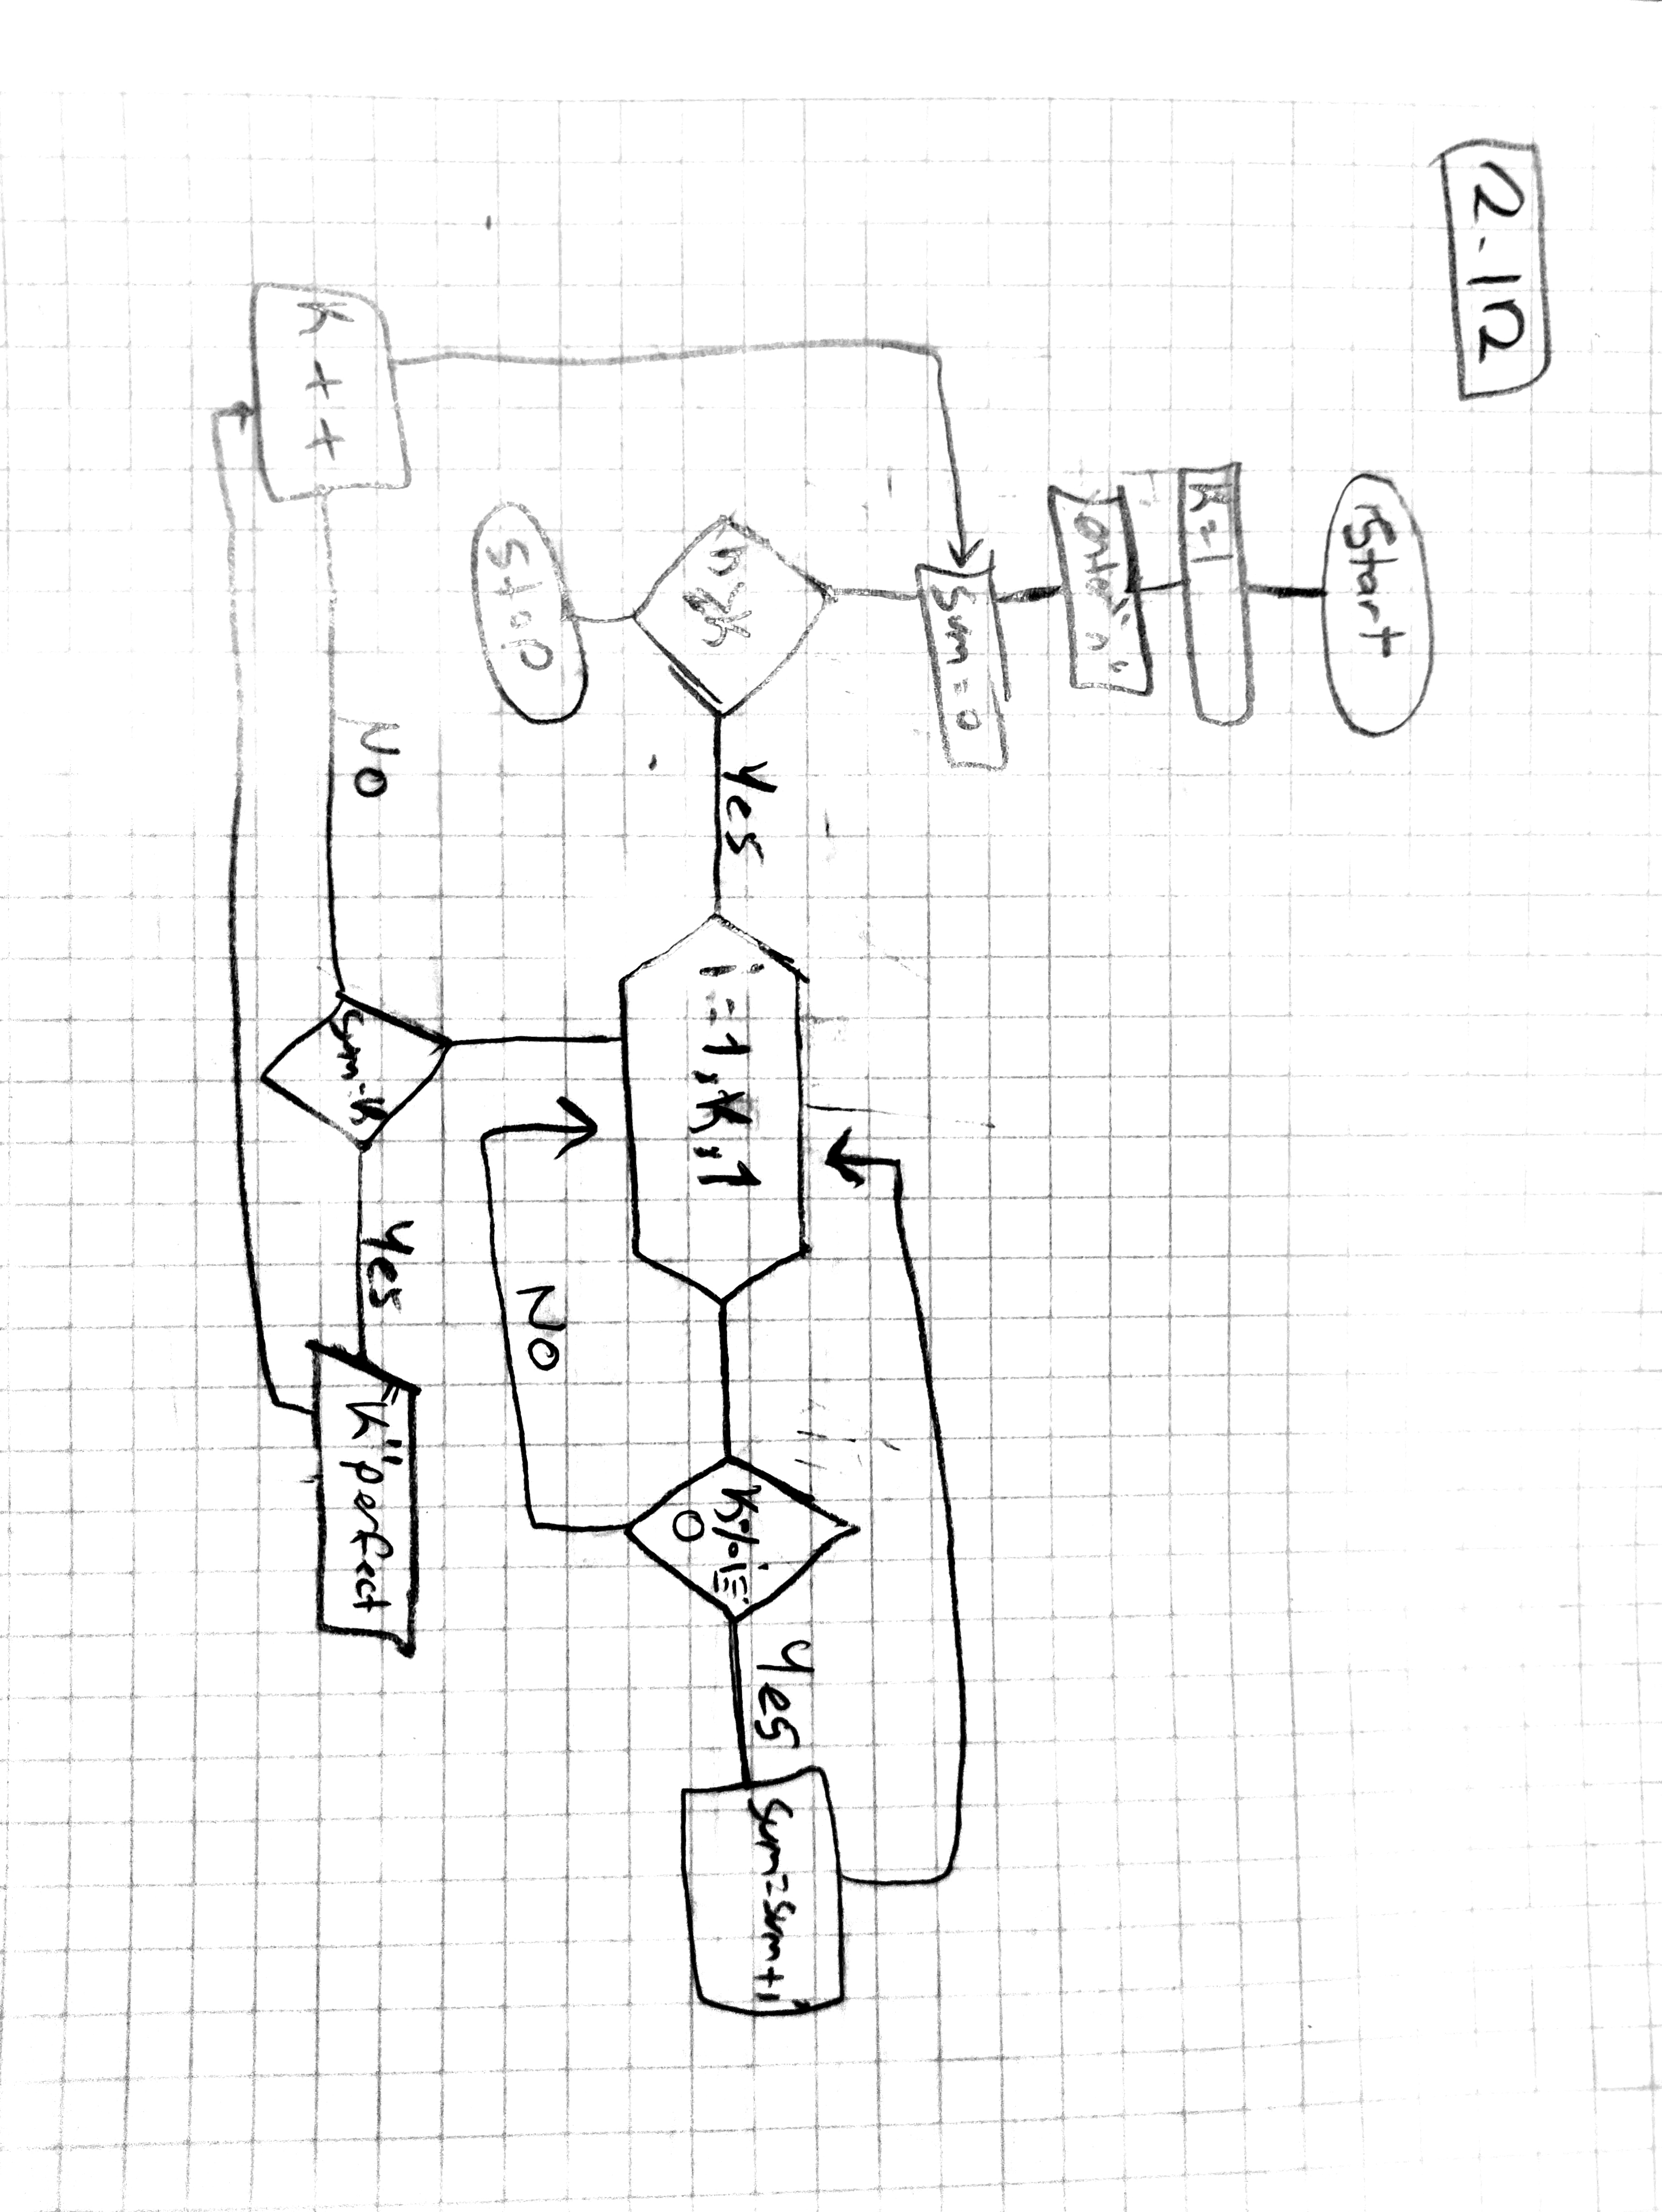 2.12
Start
K=1
enter "n"
Sum=0
n≥K
Yes
i=1,K,1
K%i==
0
Yes
Sum=Sum+i
No
Stop
Sum=K
Yes
"K" perfect
No
K++